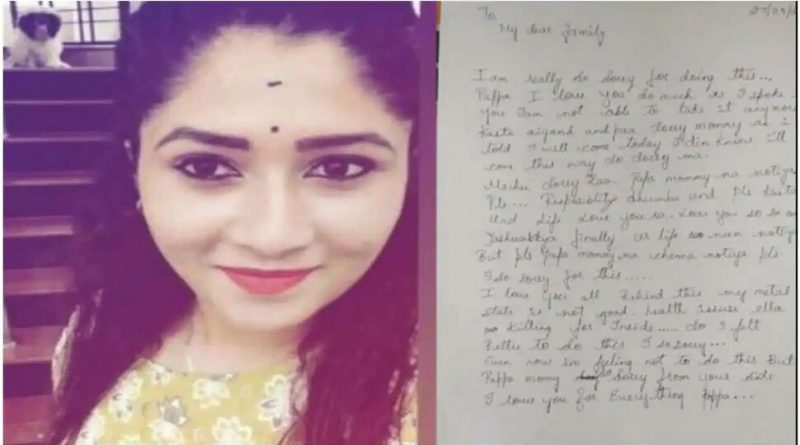 To, 27/09/
My dear family
I am really so sorry for doing this...
Pappa I love you so much as I spoke
you I am not able to take it anymore
Kasta and sorry mommy as I
told I will come today I din know I'll
come this way so sorry ma.
Sorry Papa mommy na
Pls... Responsibility and pls
And life love you ra. Love you so so
finally life nun notiya
But pls Papa mommy na notiya pls
I so sorry for this.....
I love you all Behind this my metal
state is not good. health issuse ella
so killing for Inside..... so I felt
to do this I so sorry...
Even now im feeling not to do this But
Pappa momy sorry from your side
I love you for Everything Pappa...